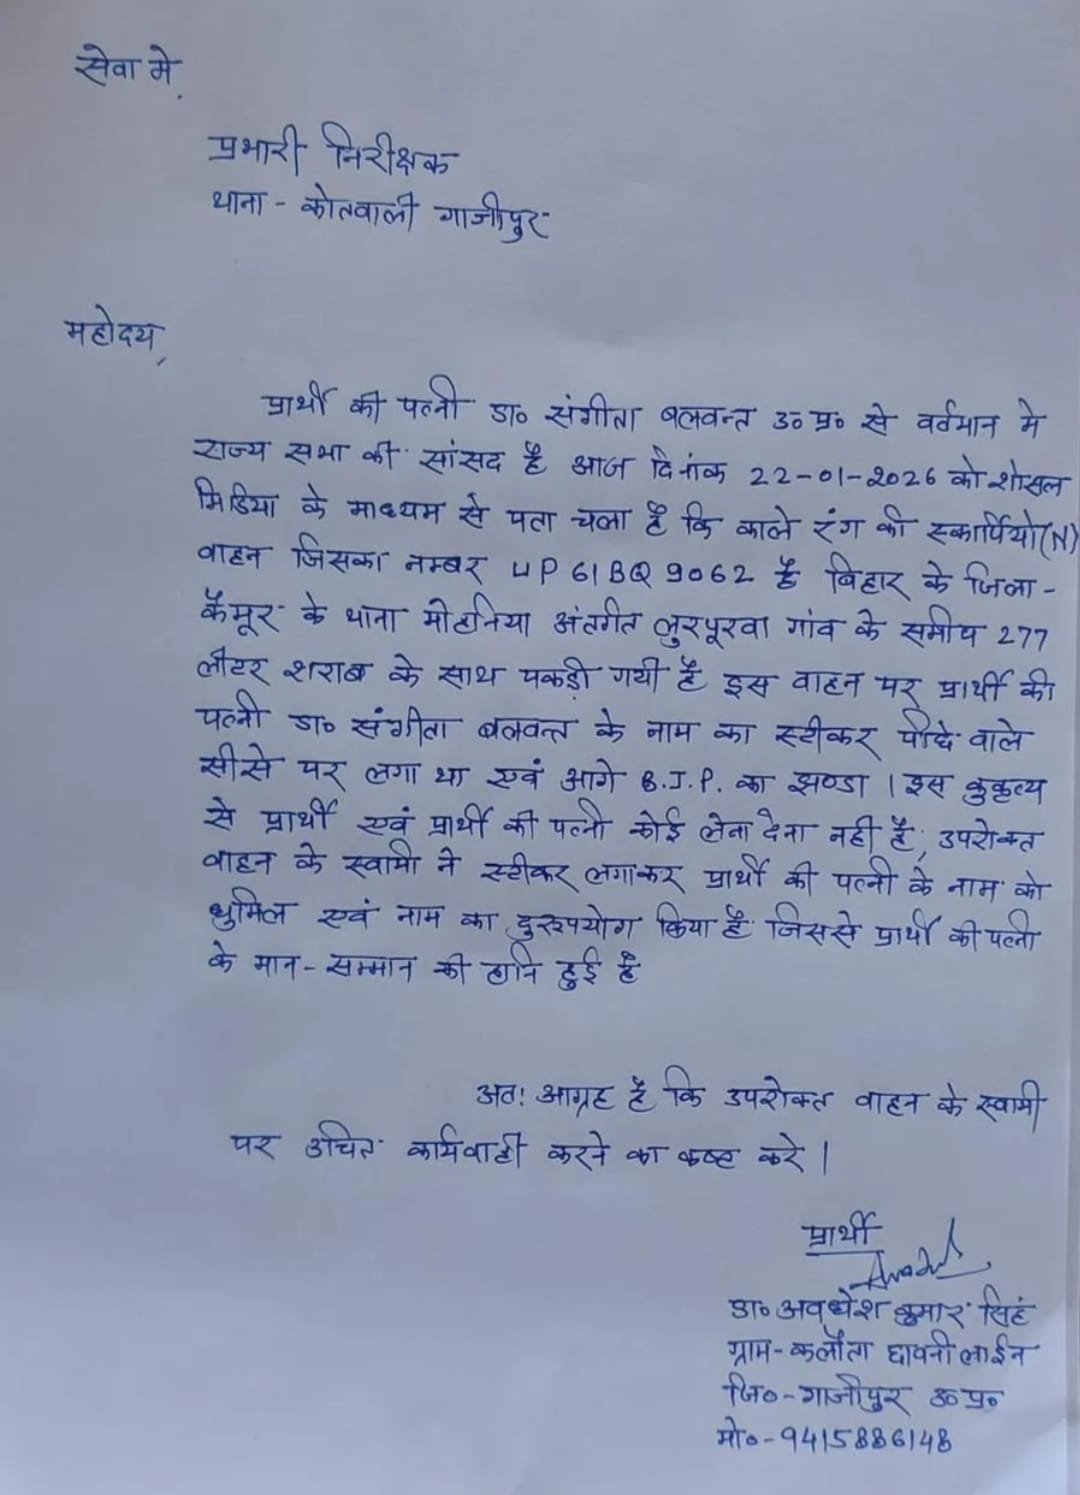 सेवा मे,
प्रभारी निरीक्षक
थाना - कोतवाली गाजीपुर
महोदय,
प्रार्थी की पत्नी डा० संगीता बलवन्त उ० प्र० से वर्तमान मे
राज्य सभा की सांसद है आज दिनांक 22-01-2026 को शोसल
मिडिया के माध्यम से पता चला है कि काले रंग की स्कार्पियो(N)
वाहन जिसका नम्बर UP61BQ9062 है बिहार के जिला -
कैमूर के थाना मोहनिया अंतर्गत लुरपूरवा गांव के समीप 277
लीटर शराब के साथ पकड़ी गयी है इस वाहन पर प्रार्थी की
पत्नी डा० संगीता बलवन्त के नाम का स्टीकर पीछे वाले
सीसे पर लगा था एवं आगे B.J.P. का झण्डा । इस कुकृत्य
से प्रार्थी एवं प्रार्थी की पत्नी कोई लेना देना नही है, उपरोक्त
वाहन के स्वामी ने स्टीकर लगाकर प्रार्थी की पत्नी के नाम को
धुमिल एवं नाम का दुरुपयोग किया है जिससे प्रार्थी की पत्नी
के मान - सम्मान की हानि हुई है
अतः आग्रह है कि उपरोक्त वाहन के स्वामी
पर उचित कार्यवाही करने का कष्ट करे ।
प्रार्थी
डा० अवधेश कुमार सिहं
ग्राम - कलौता छावनी लाईन
जि० - गाजीपुर उ० प्र०
मो० - 9415886148